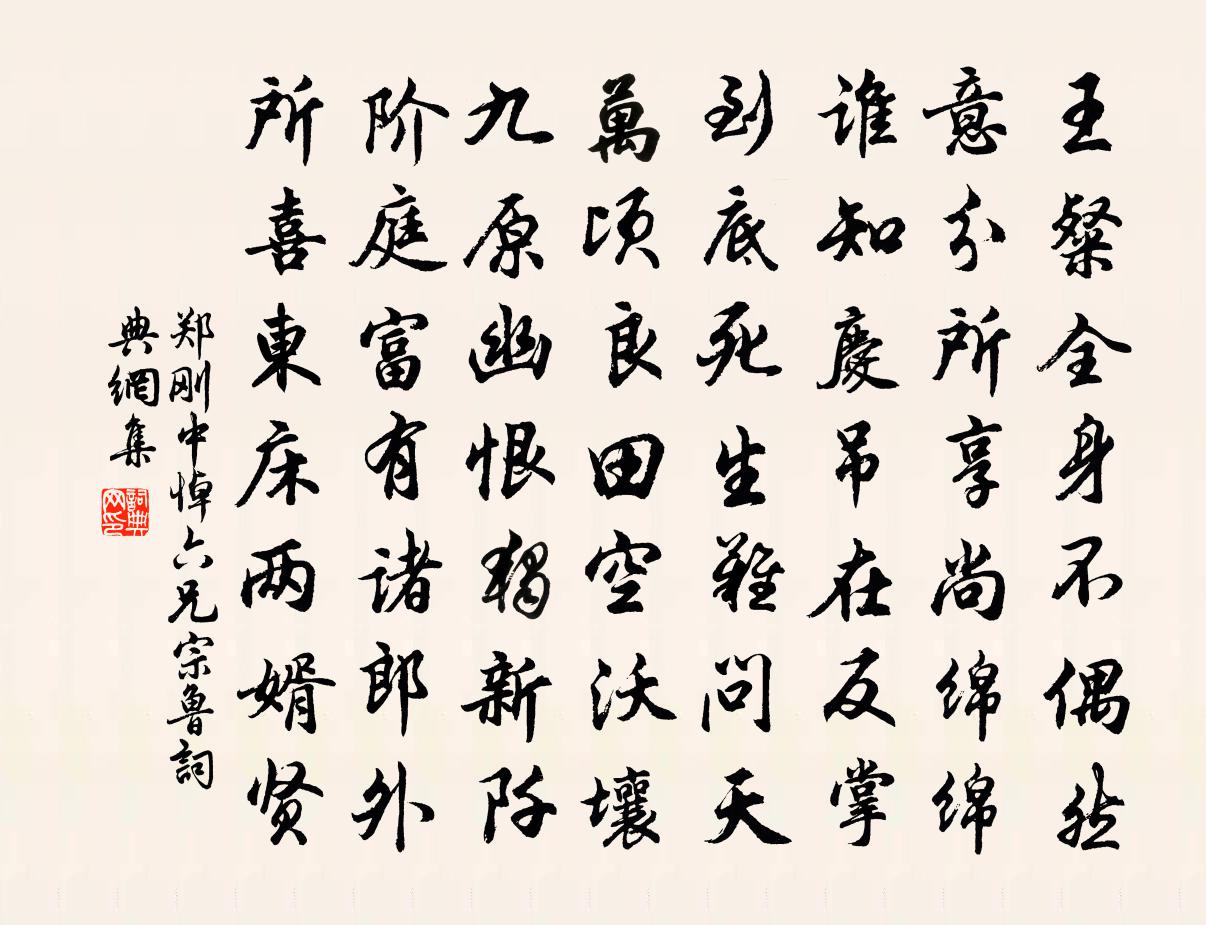 王粲全身不偶然
意分所享尚绵绵
谁知慶吊在反掌
到底死生難问天
萬顷良田空沃壤
九原幽恨独新阡
阶庭富有诸郎外
所喜東床两婿贤
郑刚中悼六兄宗鲁詞
典網集
詞典
网印